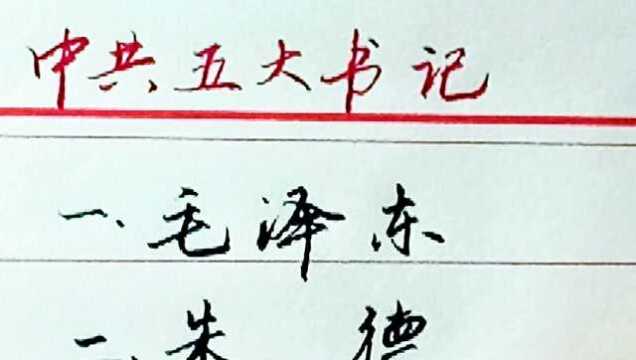 中共五大书记
一、毛泽东
二、朱 德